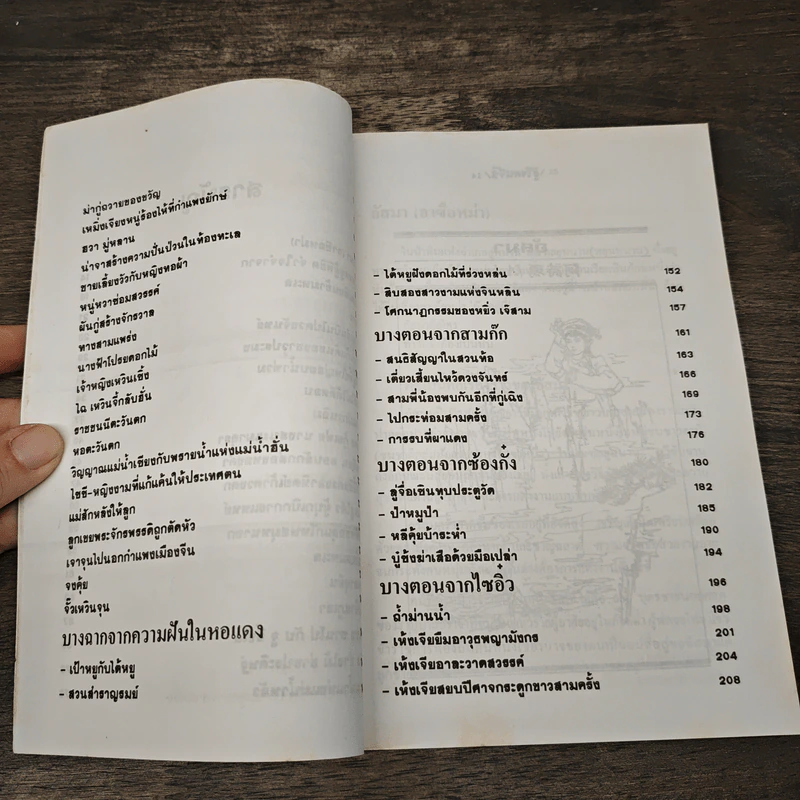 ม่ากู่ถวายของขวัญ
เหมิ่งเจียงหนูร้องไห้ที่กำแพงยักษ์
ฮวา มู่หลาน
น่าจาสร้างความปั่นป่วนในท้องทะเล
ชายเลี้ยงวัวกับหญิงทอผ้า
หนู่หวาซ่อมสวรรค์
ผันกู่สร้างจักรวาล
ทางสามแพร่ง
นางฟ้าโปรยดอกไม้
เจ้าหญิงเหวินเชิ้ง
ไฉ เหวินจี้กลับฮั่น
ราชชนนีตะวันตก
หอตะวันตก
วิญญาณแม่น้ำเซียงกับพรายน้ำแห่งแม่น้ำฮั่น
ไซซี-หญิงงามที่แก้แค้นให้ประเทศตน
แม่สักหลังให้ลูก
ลูกเขยพระจักรพรรดิถูกตัดหัว
เจาจุนไปนอกกำแพงเมืองจีน
จงคุ้ย
จั๊วเหวินจุน
บางฉากจากความฝันในหอแดง
- เป้าหยูกับไต้หยู
- สวนสำราญรมย์
- ไต้หยูฝังดอกไม้ที่ร่วงหล่น 152
- สิบสองสาวงามแห่งจินหลิน 154
- โศกนาฏกรรมของหยิ่ว เจ๊สาม 157
บางตอนจากสามก๊ก 161
- สนธิสัญญาในสวนท้อ 163
- เตี่ยวเสี้ยนไหว้ดวงจันทร์ 166
- สามพี่น้องพบกันอีกที่กู่เฉิง 169
- ไปกระท่อมสามครั้ง 173
- การรบที่ผาแดง 176
บางตอนจากซ้องกั๋ง 180
- ลู่จื่อเชินทุบประตูวัด 182
- ป่าหมูป่า 185
- หลีคุ้ยบ้าระห่ำ 190
- บู๊ซ้งฆ่าเสือด้วยมือเปล่า 194
บางตอนจากไซอิ๋ว 196
- ถ้ำม่านน้ำ 198
- เห้งเจียยืมอาวุธพญามังกร 201
- เห้งเจียอาละวาดสวรรค์ 204
- เห้งเจียสยบปีศาจกระดูกขาวสามครั้ง 208